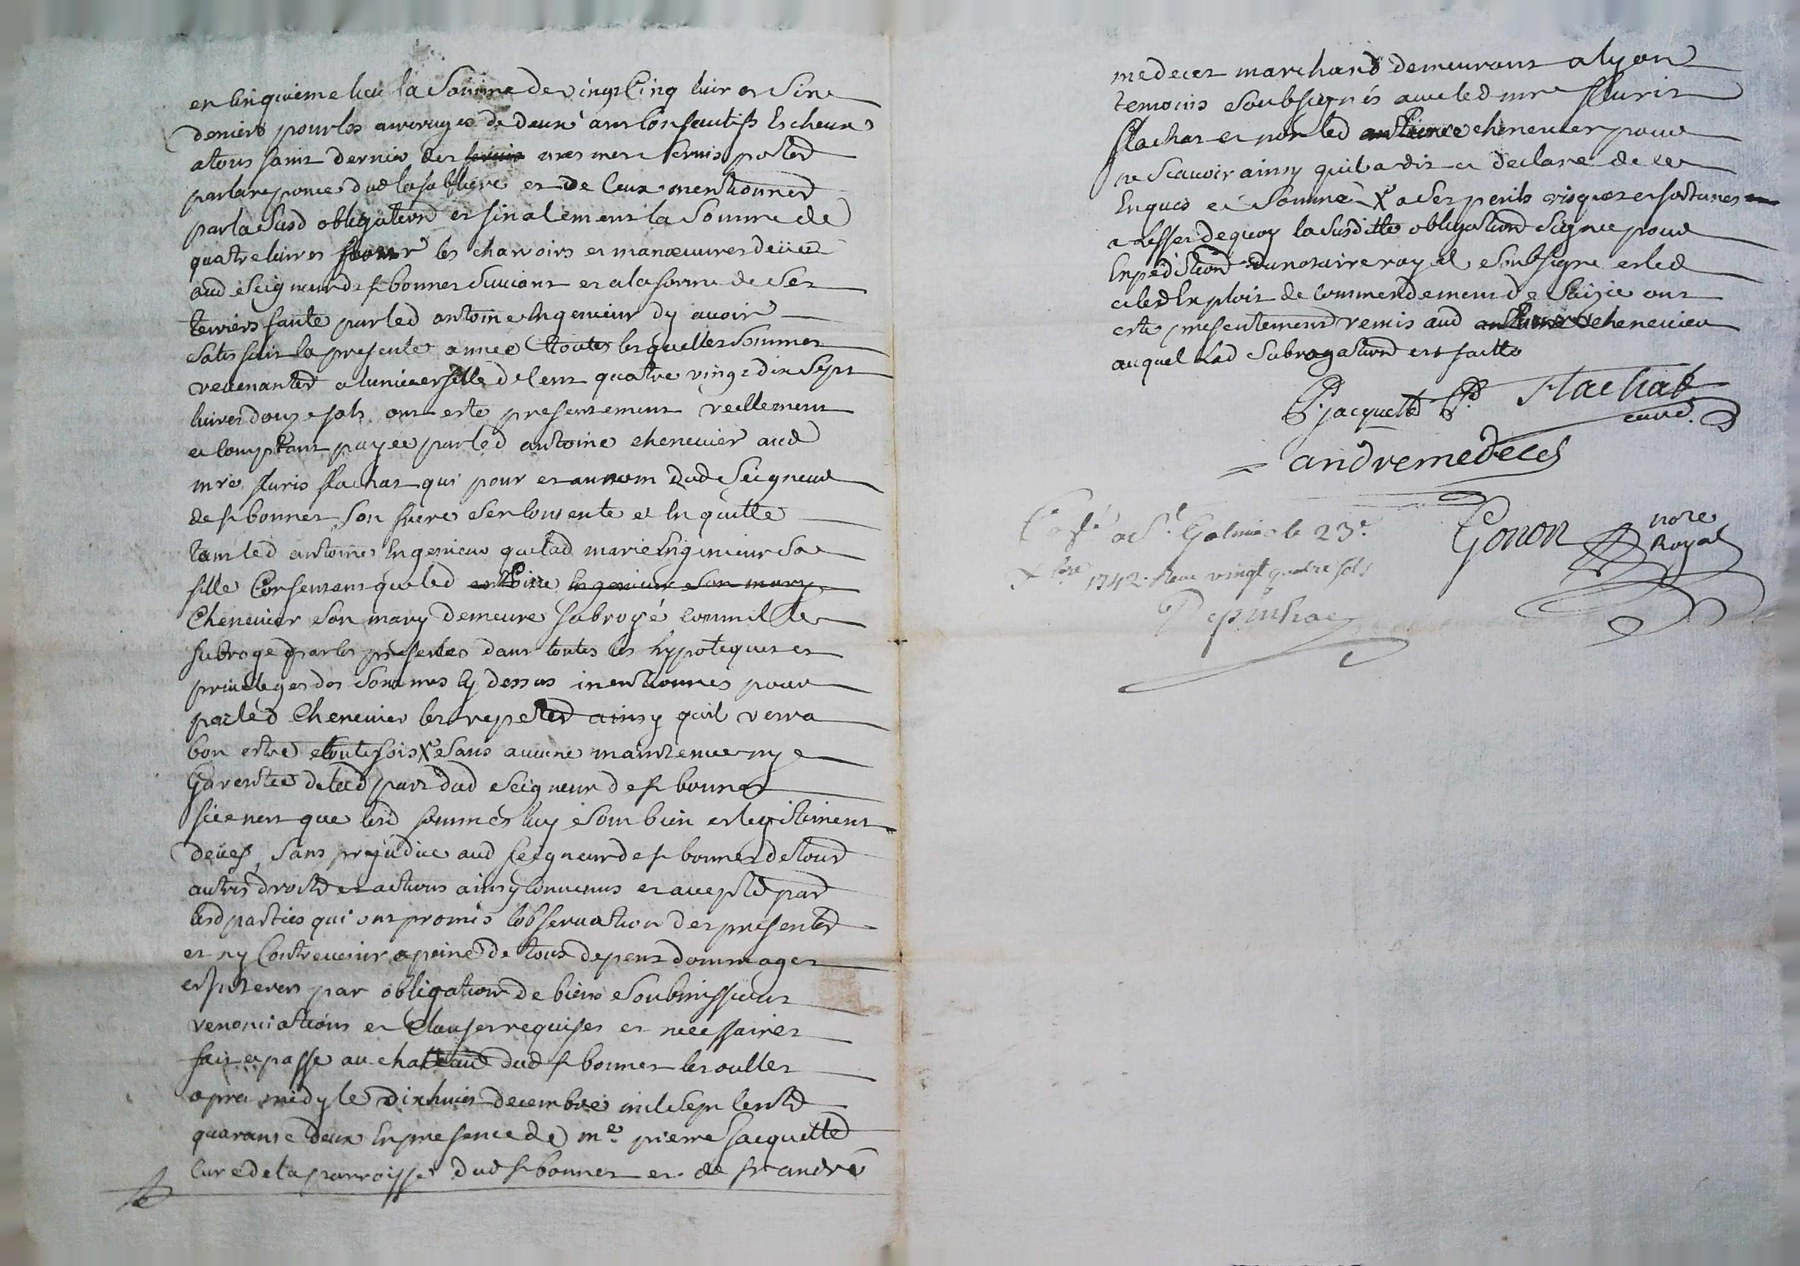 en cinquieme lieu la somme de vingt cinq livres cinq
deniers pour les arrerages de deux ans consecutifs Escheus
a tous saints dernier des mesmes servis portes
par la reponce dud la sabliere et de ceux mentionnes
par la susd obligation et finalement la somme de
quatre livres pour les charrois et manoeuvres deües
aud seigneur de st bonnet suivant et a la forme de ses
terriers faute par led antoine Ingenieur dy avoir
satisfait la presente année toutes lesquelles sommes
revenantes a luniverselle de cent quatre vingt dix sept
livres douze sols ont esté presentement reellement
et comptant payee par led antoine chenevier aud
mre fluris flachat qui pour et au nom dud seigneur
de st bonnet son frere sen contente et En quitte
tant led antoine Ingenieur que lad marie Ingenieur sa
fille Consentant que led antoine Ingenieur son mary
Chenevier son mary demeure subrogé comme il le
subroge par les presentes dans toutes les hypoteques et
privileges des sommes cy dessus mentionnes pour
par led Chenevier les repeter ainsy quil verra
bon estre toutesfois X sans aucune maintenue ny
Garentie de la part dud seigneur de st bonnet
si ce nest que lesd sommes luy sont bien et legitiment
deües, sans prejudice aud seigneur de st bonnet de tous
autres droits et actions ainsy convenus et accepté par
lesd parties qui ont promis lobservation des presentes
et ny Contrevenir a peine de tous depens dommages
et Interets par obligation de biens soubmissions
renonciations et Clauses requises et necessaires
fait et passé au chateau dud st bonnet les oulles
apres midy le dix huit decembre mil sept cents
quarante deux En presence de me. pierre Jacquette
Curé de la parroisse dud st bonnet et de sr andré
medeces marchand demeurant a lyon
temoins soubsignés avec led mre fluris
flachat et non led antoine chenevier pour
ne scavoir ainsy quil a dit et declaré de ce
Enquis et sommé X a ses perils risques et fortunes
a leffet de quoy la susditte obligation signé pour
Expedition du notaire royal soubsigné et led
acte dExploit de commendement de saisie ont
esté presentement remis aud antoine chenevier
auquel lad subrogation est faitte
P. Jacquette Flachat
curé.
andre medeces
Gonon nore
Royal
a St. Galmier le 23e.
Xbre 1742. Reçu vingt quatre sols